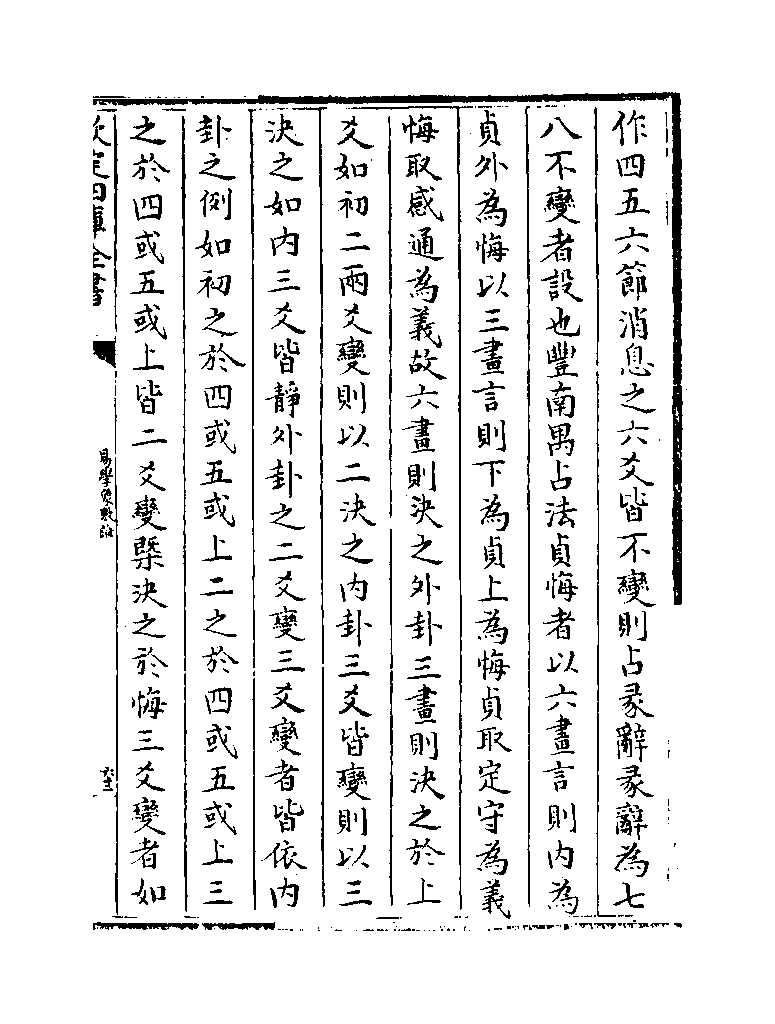 作四五六節消息之六爻皆不變則占彖辭彖辭為七
八不變者設也豐南禺占法貞悔者以六畫言則内為
貞外為悔以三畫言則下為貞上為悔貞取定守為義
悔取感通為義故六畫則決之外卦三畫則決之於上
爻如初二兩爻變則以二決之内卦三爻皆變則以三
決之如内三爻皆靜外卦之二爻變三爻變者皆依内
卦之例如初之於四或五或上二之於四或五或上三
之於四或五或上皆二爻變槩決之於悔三爻變者如
欽定四庫全書
易學象數論